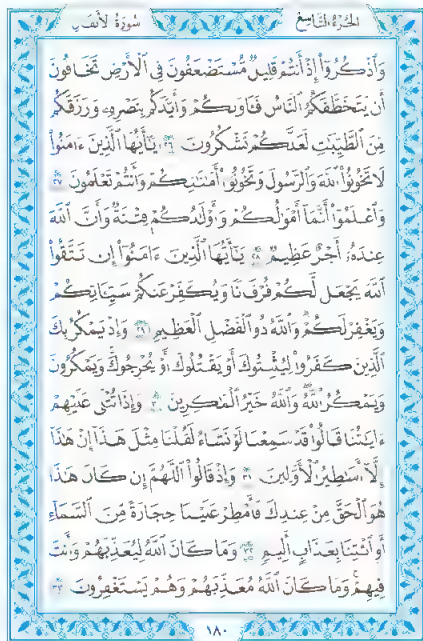 الجزء التاسع سورة الأنفال
وَاذْكُرُوا إِذْ أَنتُمْ قَلِيلٌ مُّسْتَضْعَفُونَ فِي الْأَرْضِ تَخَافُونَ
أَن يَتَخَطَّفَكُمُ النَّاسُ فَآوَىٰكُمْ وَأَيَّدَكُم بِنَصْرِهِ وَرَزَقَكُم
مِّنَ الطَّيِّبَٰتِ لَعَلَّكُمْ تَشْكُرُونَ ٢٦ يَٰأَيُّهَا الَّذِينَ ءَامَنُوا
لَا تَخُونُوا اللَّهَ وَالرَّسُولَ وَتَخُونُوا أَمَٰنَٰتِكُمْ وَأَنتُمْ تَعْلَمُونَ ٢٧
وَاعْلَمُوا أَنَّمَا أَمْوَٰلُكُمْ وَأَوْلَٰدُكُمْ فِتْنَةٌ وَأَنَّ اللَّهَ
عِندَهُ أَجْرٌ عَظِيمٌ ٢٨ يَٰأَيُّهَا الَّذِينَ ءَامَنُوا إِن تَتَّقُوا
اللَّهَ يَجْعَل لَّكُمْ فُرْقَانًا وَيُكَفِّرْ عَنكُمْ سَيِّـَٔاتِكُمْ
وَيَغْفِرْ لَكُمْ وَاللَّهُ ذُو الْفَضْلِ الْعَظِيمِ ٢٩ وَإِذْ يَمْكُرُ بِكَ
الَّذِينَ كَفَرُوا لِيُثْبِتُوكَ أَوْ يَقْتُلُوكَ أَوْ يُخْرِجُوكَ وَيَمْكُرُونَ
وَيَمْكُرُ اللَّهُ وَاللَّهُ خَيْرُ الْمَٰكِرِينَ ٣٠ وَإِذَا تُتْلَىٰ عَلَيْهِمْ
ءَايَٰتُنَا قَالُوا قَدْ سَمِعْنَا لَوْ نَشَاءُ لَقُلْنَا مِثْلَ هَٰذَا إِنْ هَٰذَا
إِلَّا أَسَٰطِيرُ الْأَوَّلِينَ ٣١ وَإِذْ قَالُوا اللَّهُمَّ إِن كَانَ هَٰذَا
هُوَ الْحَقَّ مِنْ عِندِكَ فَأَمْطِرْ عَلَيْنَا حِجَارَةً مِّنَ السَّمَاءِ
أَوِ ائْتِنَا بِعَذَابٍ أَلِيمٍ ٣٢ وَمَا كَانَ اللَّهُ لِيُعَذِّبَهُمْ وَأَنتَ
فِيهِمْ وَمَا كَانَ اللَّهُ مُعَذِّبَهُمْ وَهُمْ يَسْتَغْفِرُونَ ٣٣
١٨٠